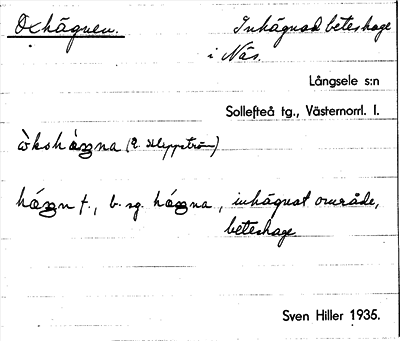 Oxhägnen. Inhägnad beteshage
i Näs.
Långsele s:n
Sollefteå tg., Västernorrl. l.
(R. Kleppström)
f., b. sg. , inhägnat område,
beteshage
Sven Hiller 1935.